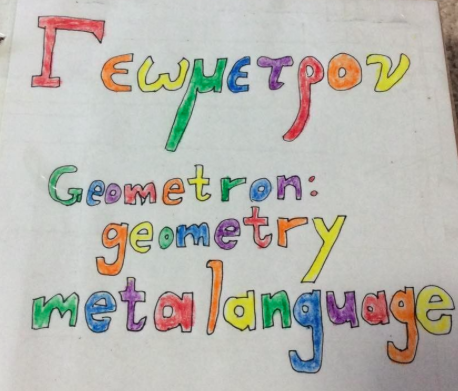 Γεωμετρον
Geometron:
geometry
metalanguage